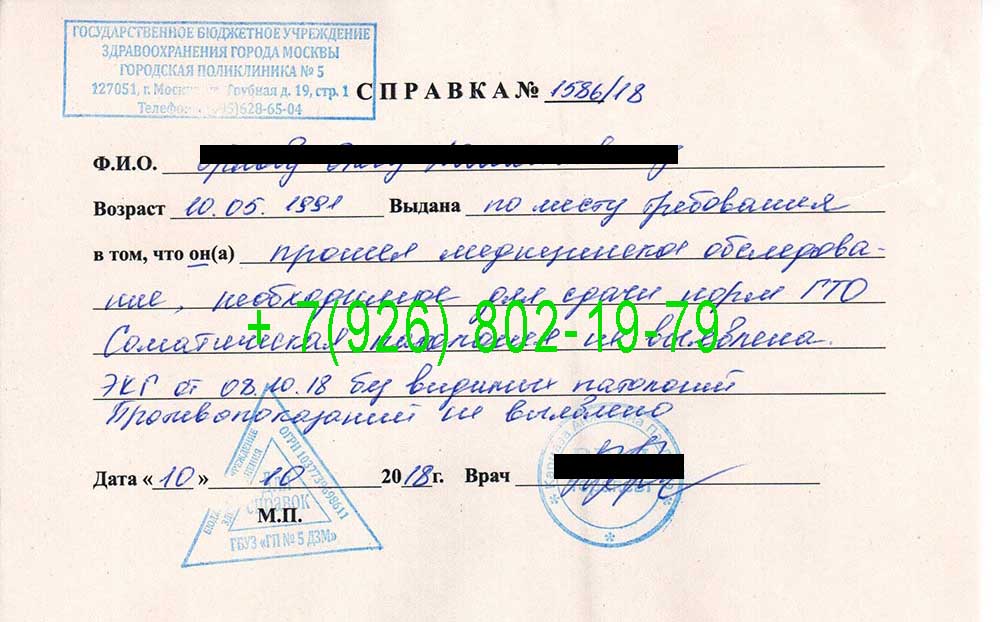 ГОСУДАРСТВЕННОЕ БЮДЖЕТНОЕ УЧРЕЖДЕНИЕ
ЗДРАВООХРАНЕНИЯ ГОРОДА МОСКВЫ
ГОРОДСКАЯ ПОЛИКЛИНИКА № 5
127051, г. Трубная д. 19, стр. 1
628-65-04
СПРАВКА № 1586/18
Ф.И.О.
Возраст 10.05.1991 Выдана по месту требования
в том, что он(а) прошел медицинское обследова-
ние, необходимое для сдачи норм ГТО
+ 7(926) 802-19-79
Соматическая патология не выявлена.
ЭКГ от 08.10.18 без видимых патологий
Противопоказаний не выявлено
Дата «10» 10 2018г. Врач
М.П.
ДЛЯ
СПРАВОК
ГБУЗ «ГП № 5 ДЗМ»